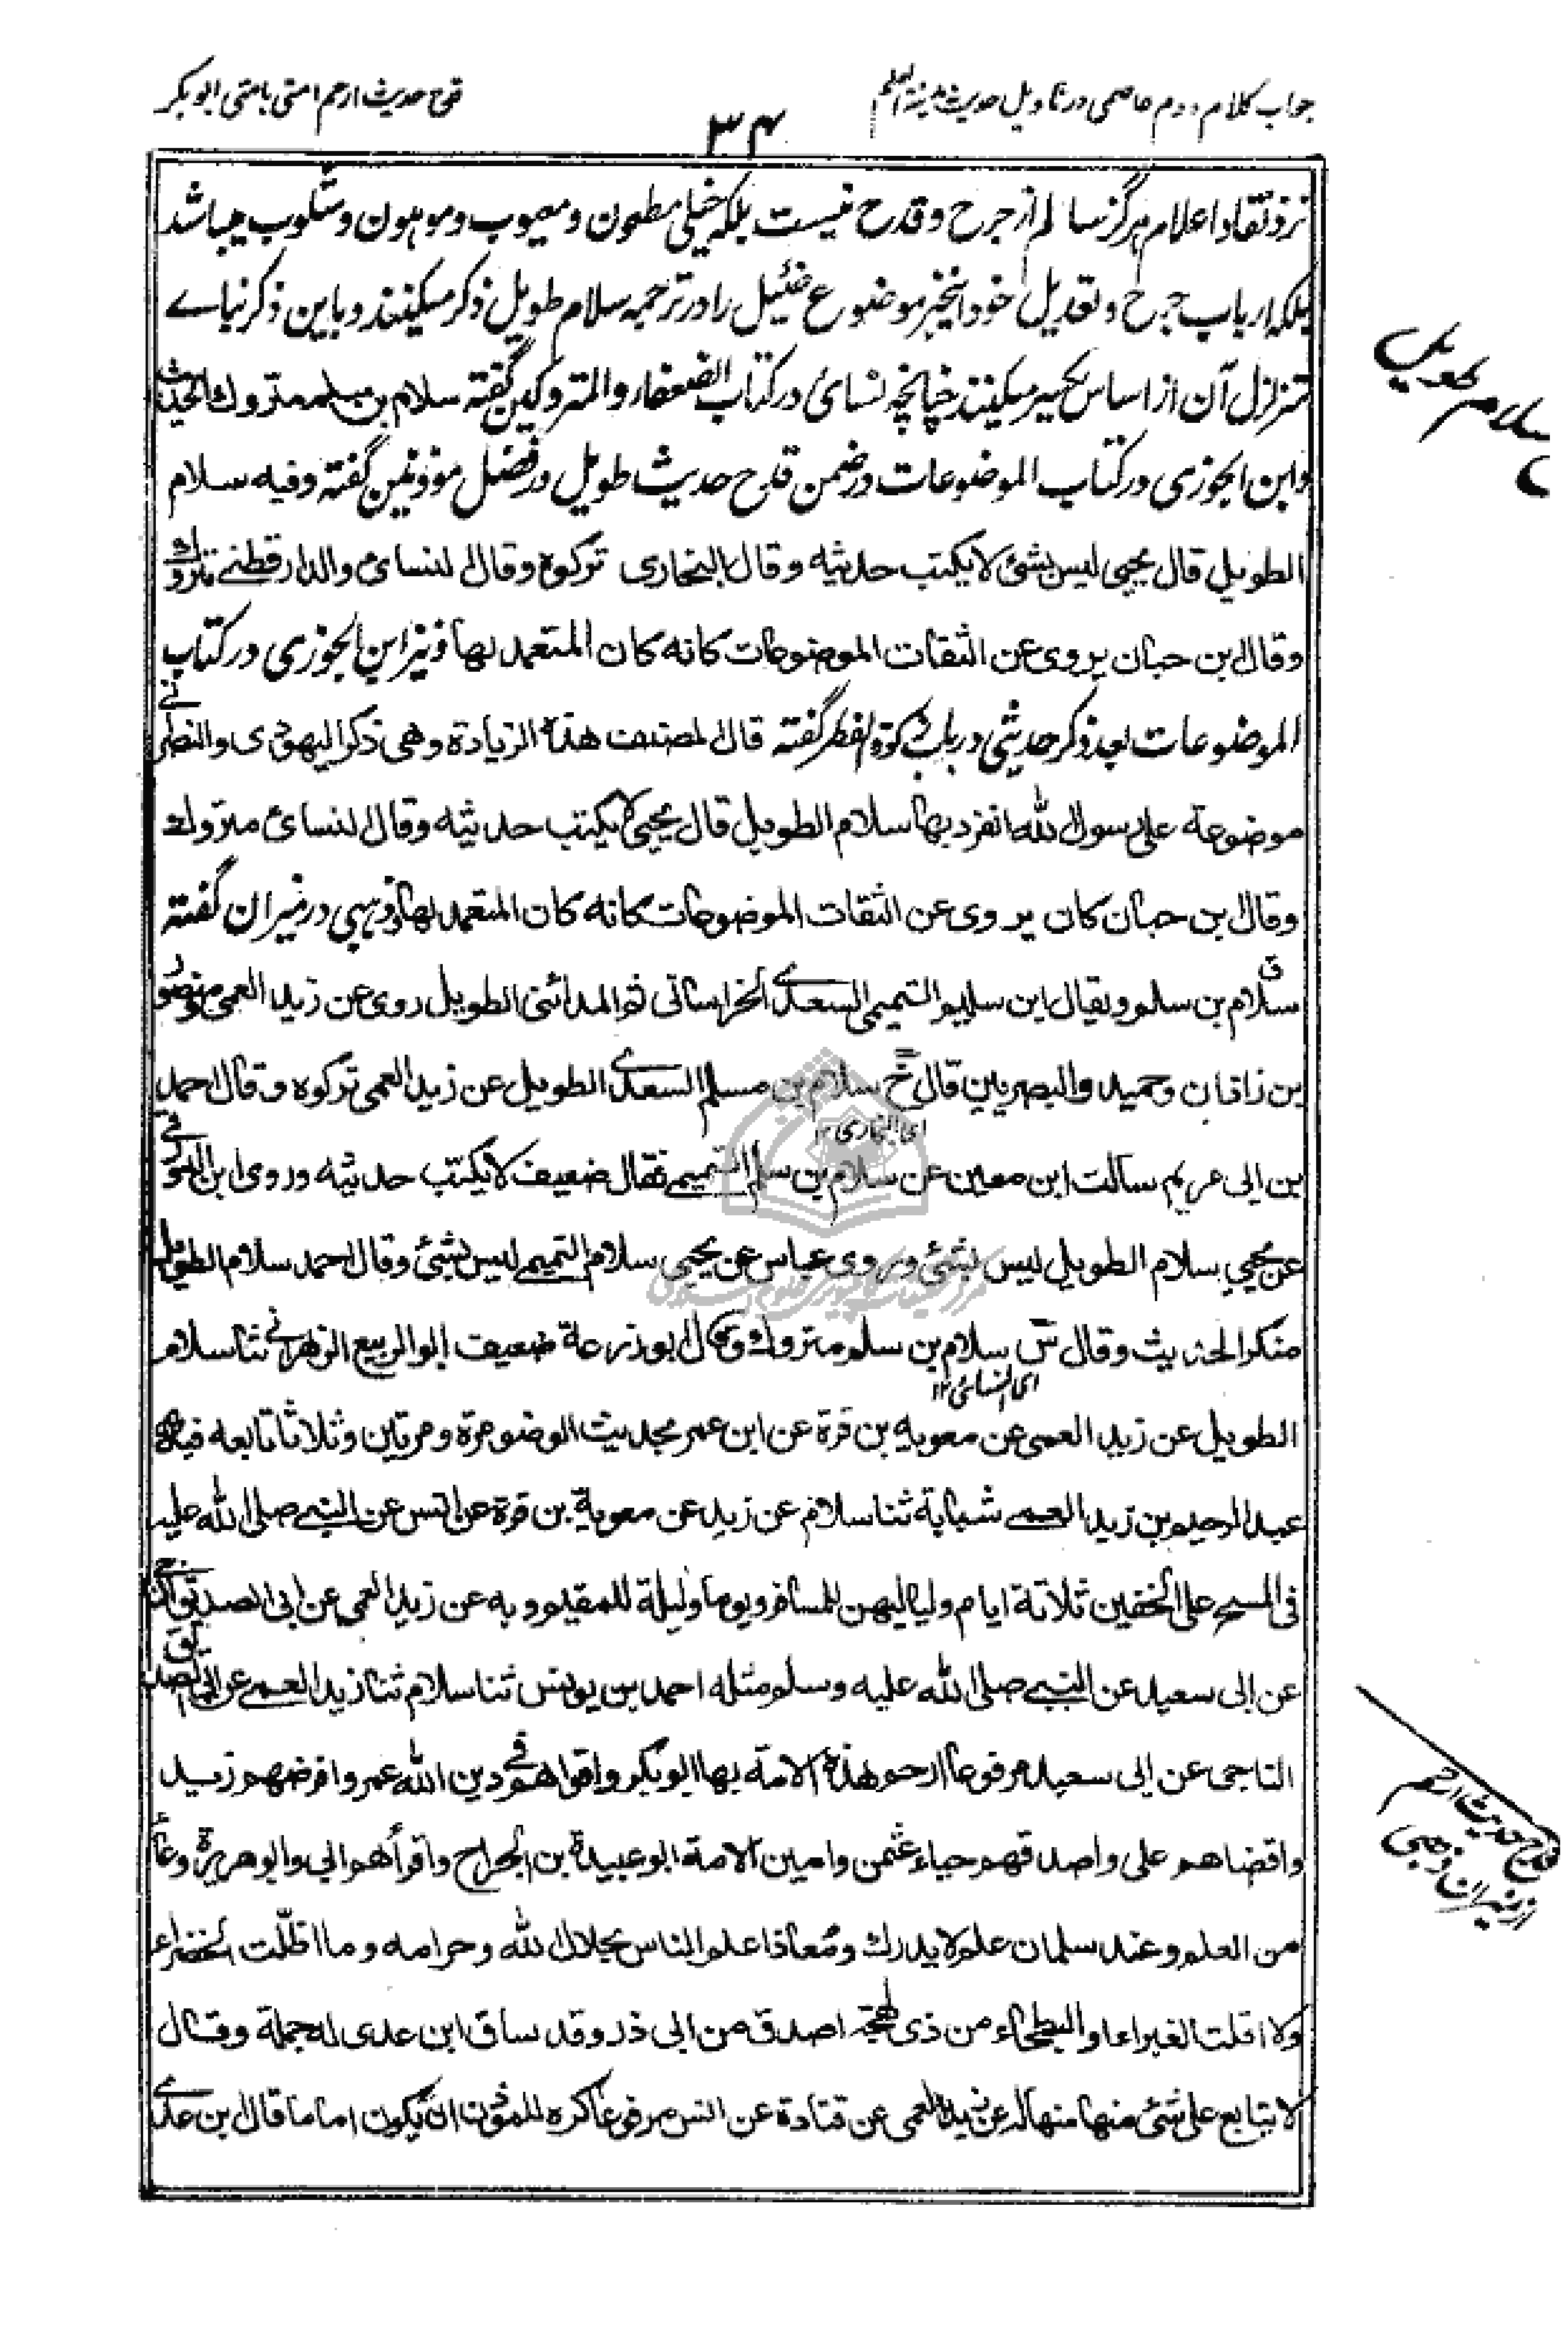 جواب کلام دوم عاصمی در تاویل حدیث مدینة العلم
قدح حدیث ارحم امتی بامتی ابو بکر
۳۴
نزد نقاد اعلام هرگز سالم از جرح و قدح نیست بلکه خیلی مطعون و معیوب و موهون و منکوب میباشد
بلکه ارباب جرح و تعدیل خود اینخبر موضوع ضئیل را در ترجمه سلام طویل ذکر میکنند و باین ذکر بنای
متزلزل آن از اساس بر میکنند چنانچه نسائی در کتاب الضعفاء والمتروکین گفته سلام بن سلم متروك الحدیث
و ابن الجوزی در کتاب الموضوعات در ضمن قدح حدیث طویل در فضل مؤذنین گفته وفیه سلام
الطویل قال یحیی لیس بشئ لا یکتب حدیثه وقال البخاری ترکوه وقال النسائی والدارقطنی متروك
وقال ابن حبان یروی عن الثقات الموضوعات کانه کان المتعمد لها و نیز ابن الجوزی در کتاب
الموضوعات بعد ذکر حدیثی در باب زکوة الفطر گفته قال المصنف هذه الزیادة وهی ذکر الیهودی والنصرانی
موضوعة علی رسول الله انفرد بها سلام الطویل قال یحیی لا یکتب حدیثه وقال النسائی متروك
وقال ابن حبان کان یروی عن الثقات الموضوعات کانه کان المتعمد لها و ذهبی در میزان گفته
سلام بن سلم ویقال ابن سلیم التمیمی السعدی الخراسانی ثم المدائنی الطویل روی عن زید العمی ومنصور
ق
بن زاذان وحمید والبصریین قال خ سلام بن مسلم السعدی الطویل عن زید العمی ترکوه وقال احمد
ای البخاری ۱۲
بن ابی مریم سالت ابن معین عن سلام بن سلم التمیمی فقال ضعیف لا یکتب حدیثه وروی ابن الدورقی
عن یحیی سلام الطویل لیس بشئ وروی عباس عن یحیی سلام التمیمی لیس بشئ وقال احمد سلام الطویل
منکر الحدیث وقال س سلام بن سلم متروك وقال ابو زرعة ضعیف ابو الربیع الزهرانی ثنا سلام
ای النسائی ۱۲
الطویل عن زید العمی عن معویة بن قرة عن ابن عمر بحدیث الوضوء مرة ومرتین وثلاثا تابعه فیه
عبد الرحیم بن زید العمی شبابة ثنا سلام عن زید عن معویة بن قرة عن انس عن النبی صلی الله علیه
فی المسح علی الخفین ثلاثة ایام ولیالیهن للمسافر ویوما ولیلة للمقیم وبه عن زید العمی عن ابی الصدیق الناجی
عن ابی سعید عن النبی صلی الله علیه وسلم مثله احمد بن یونس ثنا سلام ثنا زید العمی عن ابی الصدیق
الناجی عن ابی سعید مرفوعا ارحم هذه الامة بها ابو بکر واقواهم فی دین الله عمر وافرضهم زید
واقضاهم علی واصدقهم حیاء عثمن وامین الامة ابو عبیدة بن الجراح واقرأهم ابی وابو هریرة وعاء
من العلم وعند سلمان علم لا یدرك ومعاذ اعلم الناس بحلال الله وحرامه وما اظلت الخضراء
ولا اقلت الغبراء او البطحاء من ذی لهجة اصدق من ابی ذر وقد ساق ابن عدی له جملة وقال
لا یتابع علی شئ منها منها له عن زید العمی عن قتادة عن انس مرفوعا کره للمؤذن ان یکون اماما قال ابن عدی
سلام طویل
قدح حدیث ارحم
از میزان ذهبی